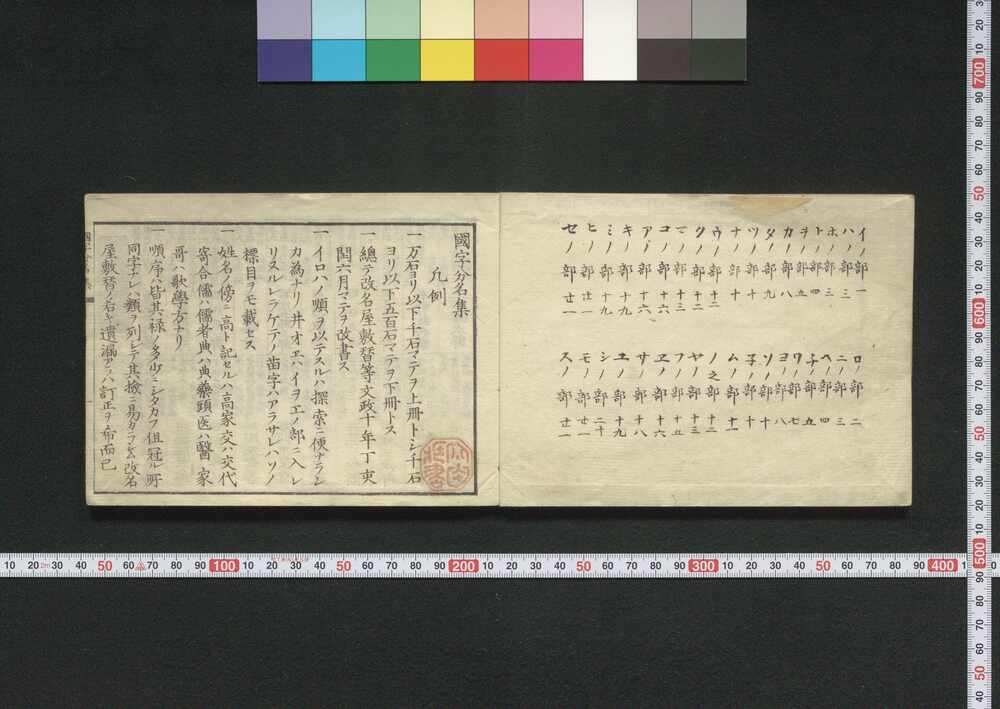 イノ部 一
ロノ部 二
ハノ部 三
ニノ部 三
ホノ部 三
ヘノ部 四
トノ部 四
チノ部 五
ヲノ部 五
ワノ部 七
カノ部 八
ヨノ部 八
タノ部 九
ソノ部 九
ツノ部 十
子ノ部 十
ナノ部 十
ムノ部 十一
ウノ部 十二
ノ之部 十二
クノ部 十二
ヤノ部 十三
マノ部 十三
フノ部 十五
コノ部 十六
ヱノ部 十六
アノ部 十六
サノ部 十六
キノ部 十九
ユノ部 十九
ミノ部 十九
シノ部 二十
ヒノ部 廿一
モノ部 廿一
セノ部 廿一
スノ部 廿一
國字分名集
凡例
一 万石ヨリ以下千石マテヲ上册トシ千石
ヨリ以下五百石マテヲ下册トス
一 總テ改名屋敷替等文政十年丁亥
閏六月マテヲ改書ス
一 イロハノ順ヲ以テスルハ探索ニ便ナラシ
カ為ナリ井オエハイヲヱノ部ニ入レ
リヌルレラケテノ苗字ハアラサレハソノ
標目ヲモ載セス
一 姓名ノ傍ニ高ト記セルハ高家交ハ交代
寄合儒ハ儒者典ハ典藥頭医ハ醫家
哥ハ歌學方ナリ
一 順序ハ皆其禄ノ多少ニシタカフ但冠ル所
同字ナレハ類ヲ列シテ其撿ニ易カラシム改名
屋敷替ノ名キ遺漏アラハ訂正ヲ希而已